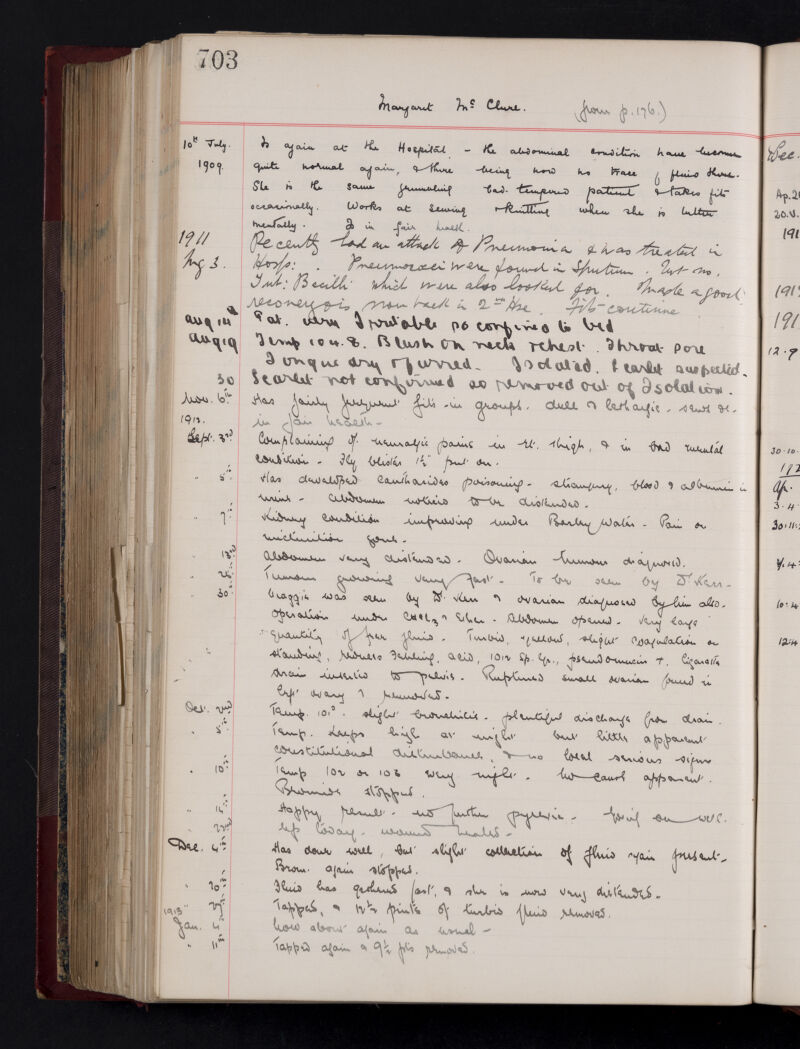 703
Margaret McClure. (from p. 176.)
10th July. Is again at the Hospital, - the abdominal condition have become
1909. quite normal again, & there being now no trace of fluid there.
She is the same grumbling bad-tempered patient & takes fits
occasionally. Works at sewing & knitting when she is better
mentally. Is in fair health.
1911 Recently had an attack of Pneumonia & was treated in
Aug 3. Hosp: . Pneumococci were found in Sputum. but no.
Tub: Bacilli which were also looked for. Made a good
recovery & is now back in 2nd Hse. Fits continue
Aug 14th Pat. very Irritable so confined to bed
Aug 19 Temp 104.8. Blush on neck & chest. Throat sore
Tongue dry & furred. Isolated. Scarlet suspected.
30 Scarlet not confirmed so removed out of Isolation.
Nov. 6th Has fairly frequent fits - in groups. dull & lethargic - sews &c.
1912. in fair health -
Sept. 3rd Complaining of neuralgic pains in rt. thigh, & in bad mental
condition - Fly blister 1½ put on.
" 5th Has developed cantharides poisoning - strangury, blood & albumin in
urine - abdomen noticed to be distended.
" 7th Kidney condition improving under Barley Water - Pain on
micturition gone.
" 13th Abdomen very distended. Ovarian tumour diagnosed.
" Tumour growing very fast - To be seen by Dr Kerr -
" 30th Maggie was seen by Dr Kerr & ovarian diagnosed by him also.
Operation under CHCl3 & Ether. Abdomen opened. Very large
quantity of free fluid. Turbid, yellow, slight coagulation on
standing, reduces Fehling, acid, 1012 Sp. Gr., pseudomucin +. Cigarette
drain inserted to pelvis. Ruptured small ovarian found in
left ovary & removed.
Oct. 2nd Temp. 101°. slight bronchitis. plentiful discharge from drain.
" 5th Temp. keeps high at night but little apparent
constitutional disturbance, & no local serious signs
" 10th Temp 102 or 103 every night. No cause apparent.
Bromide stopped.
" 15th Happy result - no further pyrexia - Going on well.
" 22nd Up today - wound healed -
Dec. 4th Has done well, but slight collection of fluid again present -
Brom. again stopped.
" 20th Fluid has gathered fast, & she is now very distended -
" Tapped, & 12½ pints of turbid fluid removed.
1913
Jan. 4th Now about again as usual -
" 11th Tapped again & 9½ pts removed.
Dec.
20.V.
191
191
191
12.9
30.10.
Ap.
3.4
30.11.
10.4
12.4